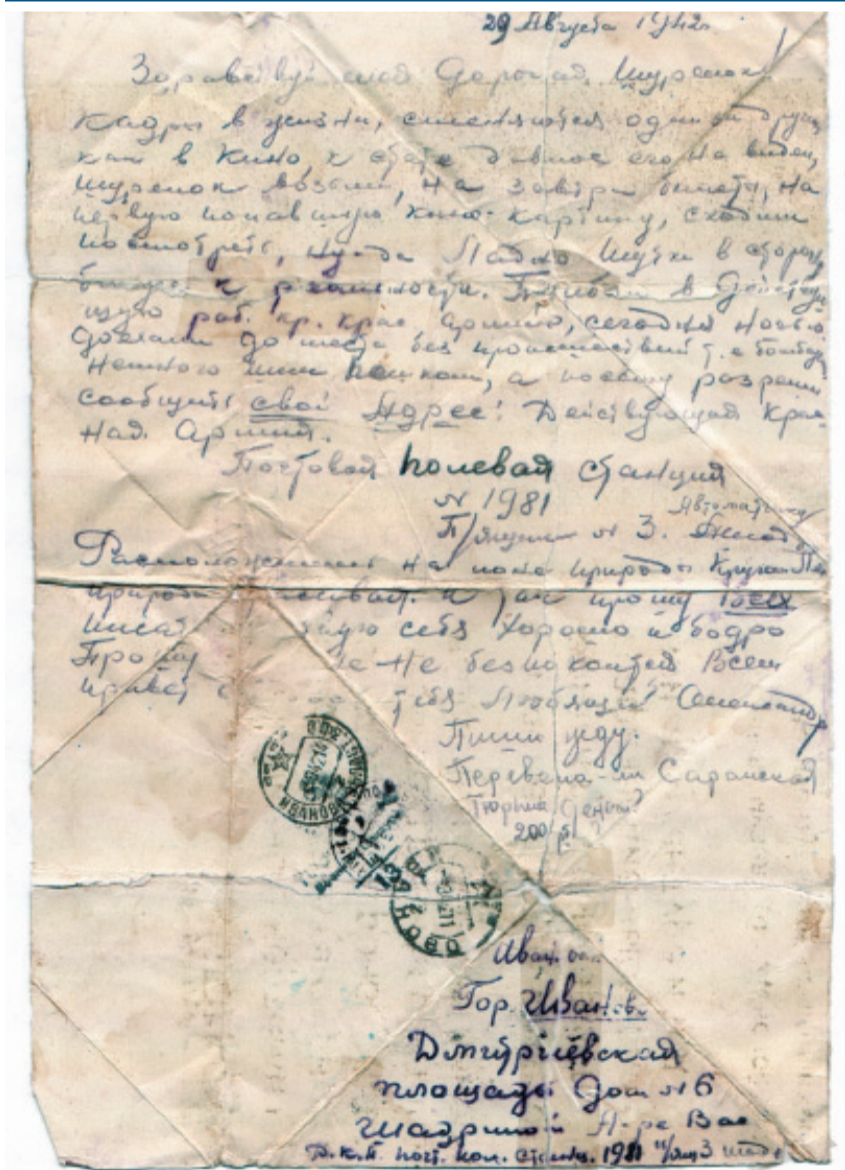 29 Августа 1942
Здравствуй моя дорогая Шуренок
Кадры в жизни, сменяются один за другим
как в кино, к стате давно его не видел,
Шуренок возьми, на завтра билеты, на
первую попавшую кино-картину, сходим
посмотреть, ну-да Ладно шутки в сторону
ближе к реальности. Прибыли в действую
щую раб. кр. крас армию, сегодня ночью
доехали до места без происшествий т.е бомбеж
немного шли пешком, а посему разреши
сообщить свой Адрес: Действующая Крас-
ная Армия.
Почтовая полевая станция
№ 1981 Автоматчику
П/ящик № 3.
Расположились на лоне природы кругом
природа и так прошу Всех
писать себя хорошо и бодро
Прошу не беспокоится Всем
привет тебя Любящий Александр
Пиши жду.
Перевела-ли Саранская
Тюрьма деньги?
200 р
Гор. Иваново
Дмитриевская
площадь Дом № 6
Шадриной А-ре Вас
Р.К.А. почт. пол. станц. 1981 п/ящ 3